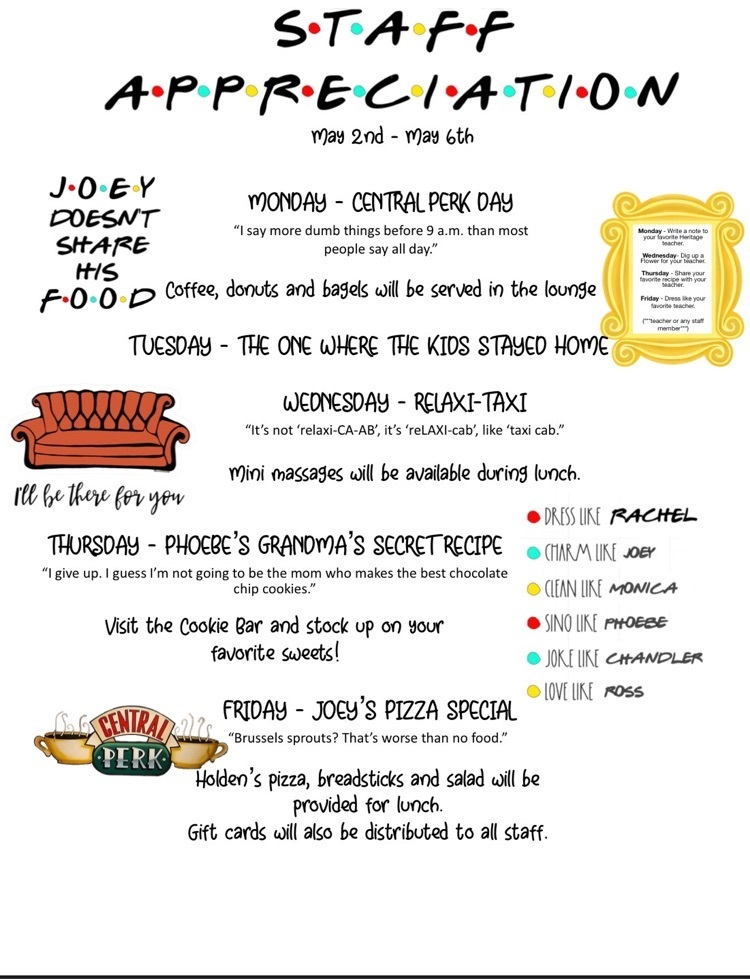 S•T•A•F•F
A•P•P•R•E•C•I•A•T•I•O•N
May 2nd - May 6th
J•O•E•Y
DOESN'T
SHARE
HIS
F•O•O•D
MONDAY - CENTRAL PERK DAY
“I say more dumb things before 9 a.m. than most
people say all day.”
Coffee, donuts and bagels will be served in the lounge
Monday - Write a note to
your favorite Heritage
teacher.
Wednesday- Dig up a
Flower for your teacher.
Thursday - Share your
favorite recipe with your
teacher.
Friday - Dress like your
favorite teacher.
(***teacher or any staff
member***)
TUESDAY - THE ONE WHERE THE KIDS STAYED HOME
WEDNESDAY - RELAXI-TAXI
“It’s not ‘relaxi-CA-AB’, it’s ‘reLAXI-cab’, like ‘taxi cab.”
Mini massages will be available during lunch.
I'll be there for you
THURSDAY - PHOEBE'S GRANDMA'S SECRET RECIPE
“I give up. I guess I’m not going to be the mom who makes the best chocolate
chip cookies.”
Visit the Cookie Bar and stock up on your
favorite sweets!
DRESS LIKE RACHEL
CHARM LIKE JOEY
CLEAN LIKE MONICA
SING LIKE PHOEBE
JOKE LIKE CHANDLER
LOVE LIKE ROSS
CENTRAL
PERK
FRIDAY - JOEY'S PIZZA SPECIAL
“Brussels sprouts? That’s worse than no food.”
Holden's pizza, breadsticks and salad will be
provided for lunch.
Gift cards will also be distributed to all staff.